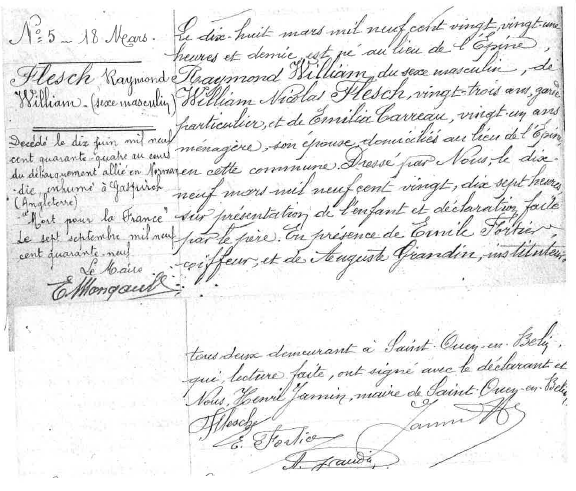 N° 5 - 18 Mars.
Flesch Raymond
William (sexe masculin)
Décédé le dix juin mil neuf
cent quarante-quatre au cours
du débarquement allié en Norman-
die, inhumé à Gasport
(Angleterre)
"Mort pour la France"
Le sept septembre mil neuf
cent quarante neuf
Le Maire
E. Mongault
Le dix-huit mars mil neuf cent vingt, vingt-une
heures et demie, est né au lieu de l'Epine,
Raymond William, du sexe masculin, de
William Nicolas Flesch, vingt-trois ans, garde
particulier, et de Emilia Carreau, vingt-un ans
ménagère, son épouse, domiciliés au lieu de l'Epine
en cette commune. Dressé par Nous, le dix-
neuf mars mil neuf cent vingt, dix sept heures,
sur présentation de l'enfant et déclaration faite
par le père. En présence de Emile Fortier
coiffeur, et de Auguste Grandin, instituteur,
tous deux demeurant à Saint-Ouen-en-Belin,
qui, lecture faite, ont signé avec le déclarant et
Nous, Henri Jamin, maire de Saint-Ouen-en-Belin,
Flesch
Jamin H
E. Fortier
A. Grandin